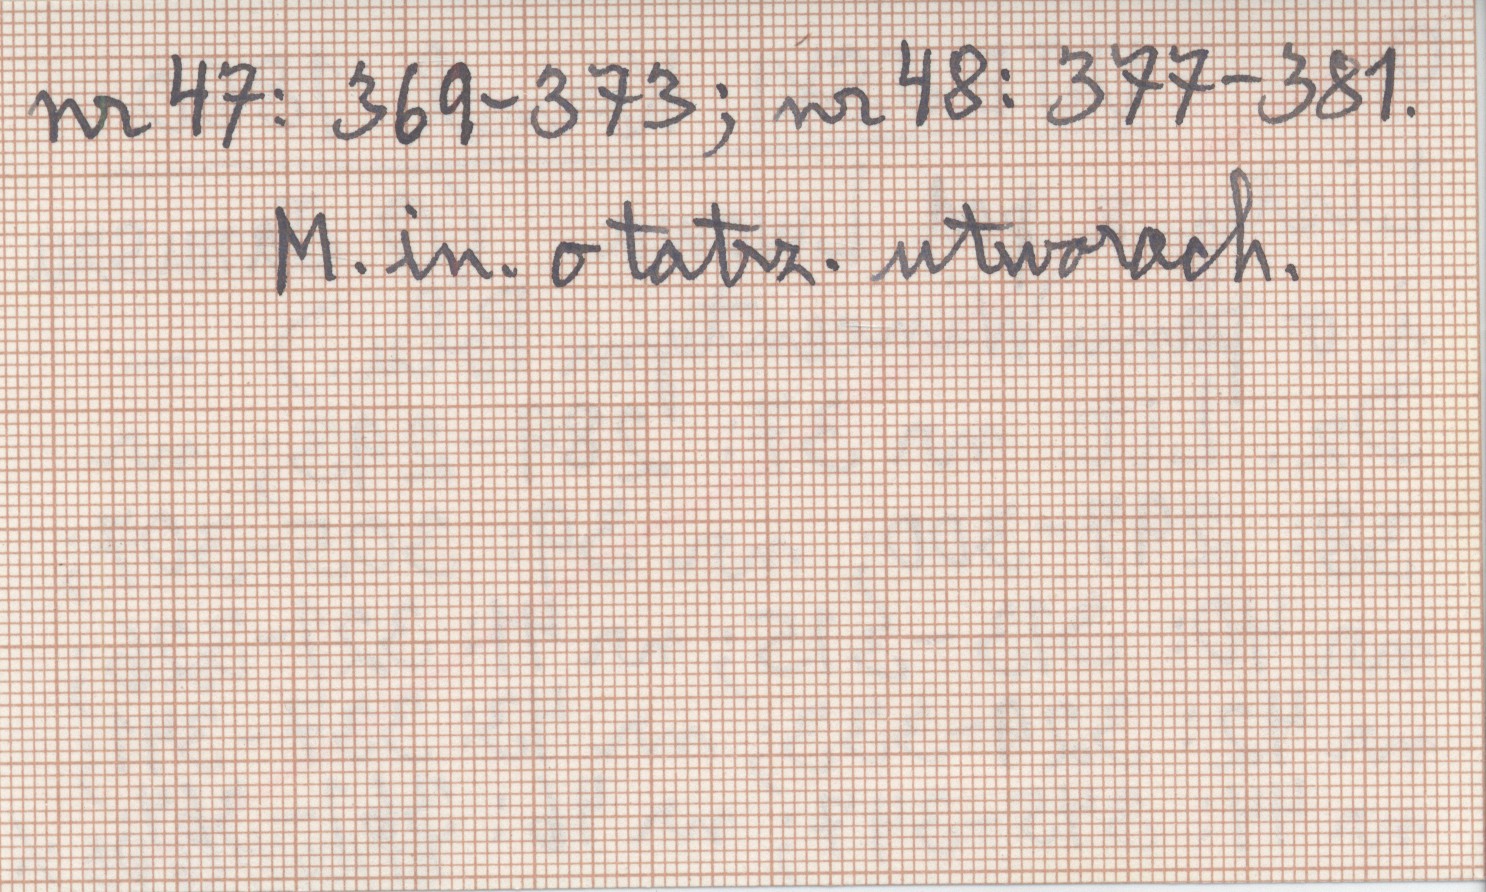 nr 47: 369-373; nr 48: 377-381.
M. in. o tatrz. utworach.